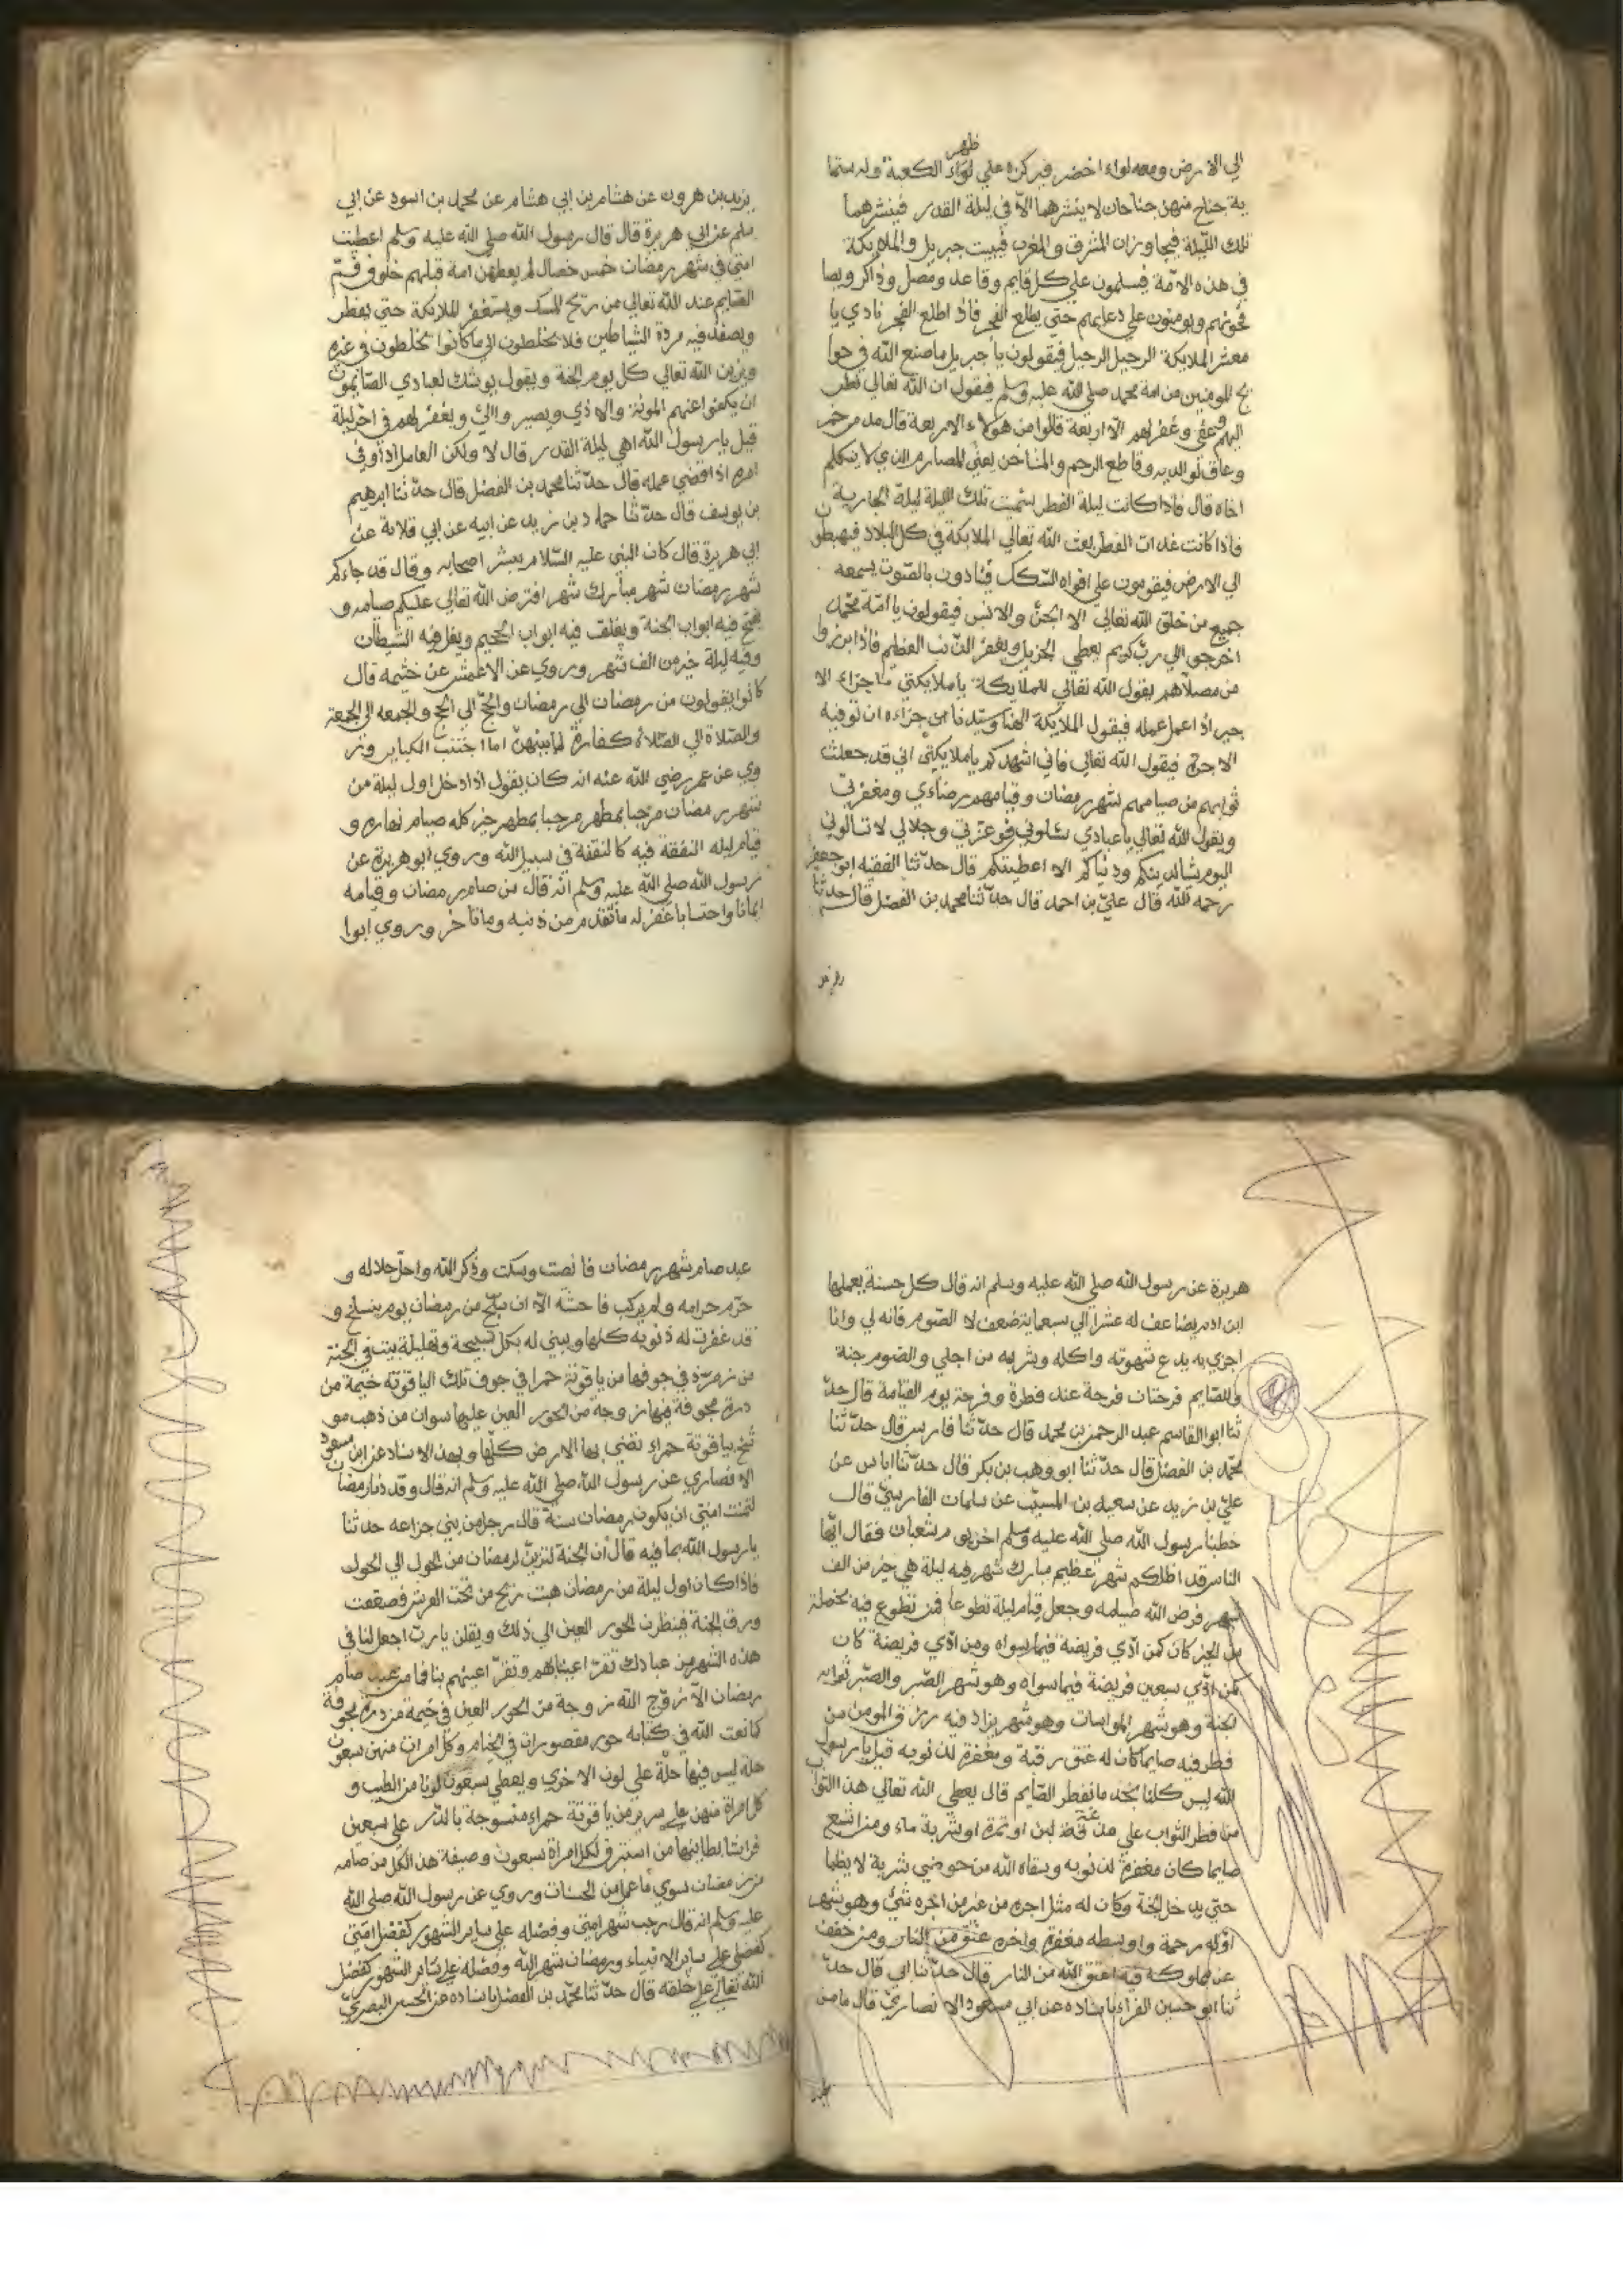 الي الارض ومعه لواء اخضر فيركزه علي ظهر الكعبة وله ستما
ية جناح منهن جناحان لا ينشرهما الا في ليلة القدر فينشرهما
تلك الليلة فيجاوزان المشرق والمغرب فيبيت جبريل والملايكة
في هذه الامة فيسلمون علي كل قايم وقاعد ومصل وذاكر ويصا
فحونهم ويومنون علي دعايهم حتي يطلع الفجر فاذا طلع الفجر نادي يا
معشر الملايكة الرحيل الرحيل فيقولون يا جبريل ما صنع الله في حوا
يج المومنين من امة محمد صلي الله عليه وسلم فيقول ان الله تعالي نظر
اليهم وعفي وغفر لهم الا اربعة قالوا من هولاء الاربعة قال مدمن خمر
وعاق لوالديه وقاطع الرحم والمشاحن يعني المصارم الذي لا يتكلم
اخاه قال فاذا كانت ليلة الفطر سميت تلك الليلة ليلة الجايزة
فاذا كانت غدات الفطر يبعث الله تعالي الملايكة في كل البلاد فيهبطو
الي الارض فيقومون علي افواه السكك فينادون بالصوت يسمعه
جميع من خلق الله تعالي الا الجن والانس فيقولون يا امة محمد
اخرجوا الي رب كريم يعطي الجزيل ويغفر الذنب العظيم فاذا برزوا
من مصلاهم يقول الله تعالي للملايكة يا ملايكتي ما جزاء الا
جير اذا عمل عمله فيقول الملايكة الهنا وسيدنا جزاءه ان توفيه
الاجرة فيقول الله تعالي فاني اشهدكم يا ملايكتي اني قد جعلت
ثوابهم من صيامهم لشهر رمضان وقيامهم رضاءي ومغفرتي
ويقول الله تعالي يا عبادي سلوني فوعزتي وجلالي لا تسالوني
اليوم شيا لدينكم ودنياكم الا اعطيتكم قال حدثنا الفقيه ابو جعفر
رحمه الله قال علي بن احمد قال حدثنا محمد بن الفضل قال حدثنا
يزيد بن هرون عن هشام بن ابي هشام عن محمد بن اسود عن ابي
سلم عن ابي هريرة قال قال رسول الله صلي الله عليه وسلم اعطيت
امتي في شهر رمضان خمس خصال لم يعطهن امة قبلهم خلوف فم
الصايم عند الله تعالي من ريح المسك ويستغفر الملايكة حتي يفطر
ويصفد فيه مردة الشياطين فلا يخلطون الي ما كانوا يخلطون في غيره
ويزين الله تعالي كل يوم الجنة ويقول يوشك لعبادي الصايمون
ان يكفوا عنهم المونة والاذي ويصير والي ويغفر لهم في اخر ليلة
قيل يا رسول الله اهي ليلة القدر قال لا ولكن العامل اذا وفي
اجره اذا قضي عمله قال حدثنا محمد بن الفضل قال حدثنا ابرهيم
بن يوسف قال حدثنا حماد بن زيد عن ابيه عن ابي قلابة عن
ابي هريرة قال كان النبي عليه السلام يبشر اصحابه وقال قد جاءكم
شهر رمضان شهر مبارك شهر افترض الله تعالي عليكم صيامه و
يفتح فيه ابواب الجنة ويغلق فيه ابواب الجحيم ويغل فيه الشيطان
وفيه ليلة خير من الف شهر وروي عن الاعمش عن خثيمه قال
كانوا يقولون من رمضان الي رمضان والحج الي الحج والجمعه الي الجمعة
والصلاة الي الصلاة كفارة لما بينهن اما اجتنب الكباير ور
وي عن عمر رضي الله عنه انه كان يقول اذا دخل اول ليلة من
شهر رمضان مرحبا بمطهر مرحبا بمطهر خير كله صيام نهاره و
قيام ليله النفقة فيه كالنفقة في سبيل الله وروي ابو هريرة عن
رسول الله صلي الله عليه وسلم انه قال من صام رمضان وقيامه
ايمانا واحتسابا غفر له ما تقدم من ذنبه وما تاخر وروي ابوا
هريرة عن رسول الله صلي الله عليه وسلم انه قال كل حسنة يعملها
ابن ادم يضاعف له عشر الي سبعماية ضعف الا الصوم فانه لي وانا
اجزي به يدع شهوته واكله وشربه من اجلي والصوم جنة
وللصايم فرحتان فرحة عند فطره وفرحة يوم القيامة قال حد
ثنا ابوا القاسم عبد الرحمن بن محمد قال حدثنا فارس قال حدثنا
محمد بن الفضل قال حدثنا ابو وهب بن بكر قال حدثنا اياس عن
علي بن زيد عن سعيد بن المسيب عن سلمان الفارسي قال
خطبنا رسول الله صلي الله عليه وسلم اخر يوم من شعبان فقال ايها
الناس قد اظلكم شهر عظيم مبارك شهر فيه ليلة هي خير من الف
شهر فرض الله صيامه وجعل قيام ليله تطوعا فمن تطوع فيه بخصلة
من الخير كان كمن ادي فريضة فيما سواه ومن ادي فريضة كان
كمن ادي سبعين فريضة فيما سواه وهو شهر الصبر والصبر ثوابه
الجنة وهو شهر المواسات وهو شهر يزاد فيه رزق المومن من
فطر فيه صايما كان له عتق رقبة ومغفرة لذنوبه قيل يا رسول
الله ليس كلنا يجد ما نفطر الصايم قال يعطي الله تعالي هذا الثوا
من فطر الثواب علي لبن او تمرة او شربة ماء ومن اشبع
صايما كان مغفرة لذنوبه وسقاه الله من حوضي شربة لا يظما
حتي يدخل الجنة وكان له مثل اجره من غير من اجره شئ وهو شهر
اوله رحمة واوسطه مغفرة واخره عتق من النار ومن خفف
عن مملوكه فيه اعتق الله من النار قال حدثنا ابي قال حد
ثنا ابو حسين الفراء باسناده عن ابي مسعود الانصاري قال ما من
عبد صام شهر رمضان فانصت وسكت وذكر الله واحل حلاله و
حرم حرامه ولم يركب فاحشة الا ان من رمضان يوم ينسلخ و
قد غفرت له ذنوبه كلها ويبني له بكل تسبيحة وتهليلة بيت في الجنة
من زمردة في جوفها من ياقوتة حمرا في جوف تلك الياقوتة خيمة من
درة مجوفة فيها زوجة من الحور العين عليها سوان من ذهب مو
شح بياقوتة حمراء تضئ بها الارض كلها وبهذا الاسناد عن ابن مسعود
الانصاري عن رسول الله صلي الله عليه وسلم انه قال وقد دنا رمضان
لتمنت امتي ان يكون رمضان سنة قال رجل من بني خزاعه حدثنا
يا رسول الله بما فيه قال ان الجنة لتزين لرمضان من الحول الي الحول
فاذا كان اول ليلة من رمضان هبت ريح من تحت العرش فصفقت
ورق الجنة فينظرن الحور العين الي ذلك ويقلن يا رب اجعل لنا في
هذه الشهر من عبادك تقر اعيننا بهم وتقر اعينهم بنا فما من عبد صام
رمضان الا زوج الله زوجة من الحور العين في خيمة من درة مجوفة
كما نعت الله في كتابه حور مقصورات في الخيام وكل امرات منهن سبعون
حلة ليس فيها حلة علي لون الاخري ويعطي سبعون لونا من الطيب و
كل امراة منهن علي سرير من ياقوتة حمراء منسوجة بالدر علي سبعين
فراشا بطاينها من استبرق لكل امراة سبعون وصيفة هذا لكل من صامه
من رمضان سوي ما عمل من الحسنات وروي عن رسول الله صلي الله
عليه وسلم انه قال رجب شهر امتي وفضله علي ساير الشهور كفضل امتي
كفضلي علي ساير الانبياء ورمضان شهر الله وفضله علي ساير الشهور كفضل
الله تعالي علي خلقه قال حدثنا محمد بن الفضل باسناده عن الحسن البصري